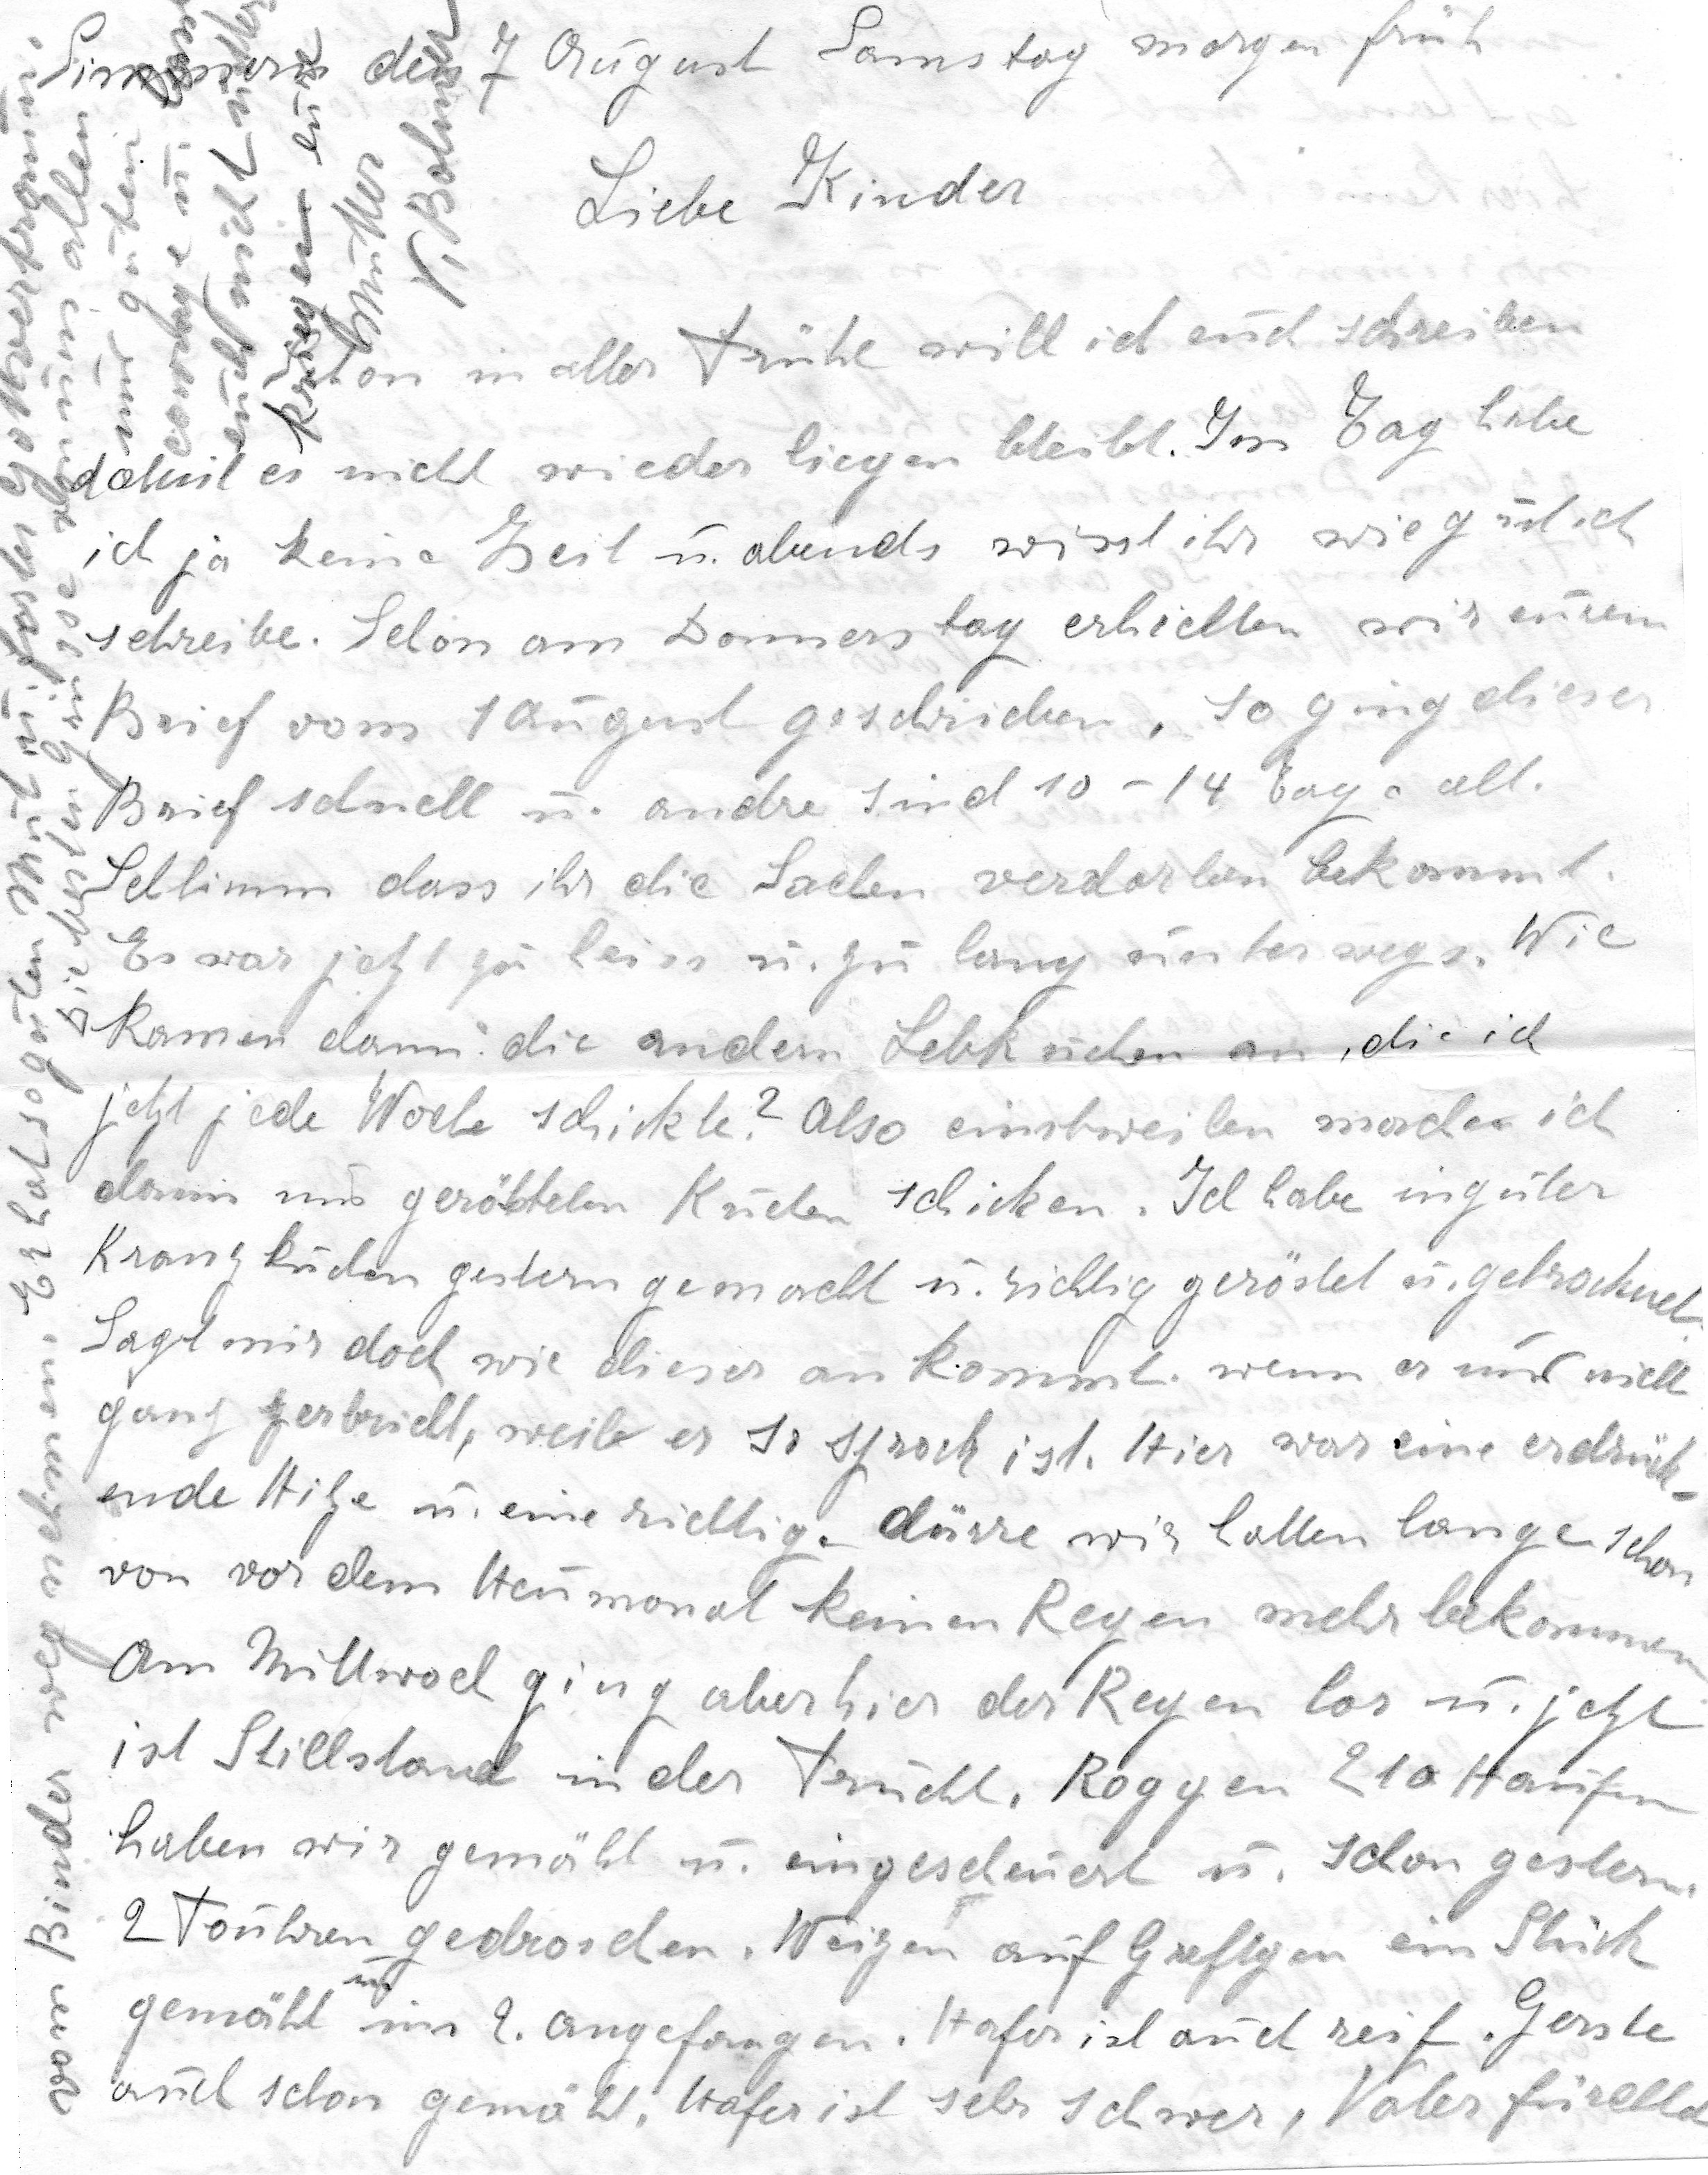 Simmern den 7 August Samstag morgen früh
Liebe Kinder
Schon in aller Frühe will ich euch schreiben
damit es nicht wieder liegen bleibt. Im Tag habe
ich ja keine Zeit u. abends wisst ihr wie gut ich
schreibe. Schon am Donnerstag erhielten wir euren
Brief vom 1 August geschrieben, so ging dieser
Brief schnell u. andre sind 10 - 14 Tage alt.
Schlimm dass ihr die Sachen verdorben bekommt.
Es war jetzt zu heiss u. zu lang unterwegs. Wie
kamen dann die andern Lebkuchen an, die ich
jetzt jede Woche schickte? Also einstweilen machen ich
dann nur gerösteten Kuchen schicken. Ich habe inguter
Kranzkuchen gestern gemacht u. richtig geröstet u. getrocknet.
Sagt mir doch wie dieser ankommt. wenn er nur nicht
ganz zerbricht, weil er so sprock ist. Hier war eine erdrück-
ende Hitze u. eine richtige dürre wir hatten lange schon
von vor dem Heumonat keinen Regen mehr bekommen
Am Mittwoch ging aber hier der Regen los u. jetzt
ist Stillstand in der Frucht. Roggen 210 Haufen
haben wir gemäht u. eingescheuert u. schon gestern
2 Fouhren gedroschen. Weizen auf ein Stück
gemäht u im 2. angefangen. Hafer ist auch reif. Gerste
auch schon gemäht. Hafer ist sehr schwer, Vater
wenn Binder wegnehmen. Er hat so guten Mut u. festes Gottvertrauen.
in allen
nur guten
courage u.
euch nicht unter
kriegen eure
Mutter